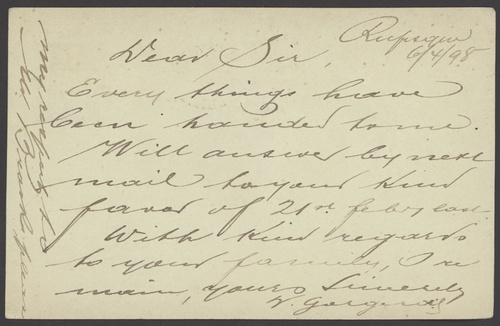 6/4/98
Dear Sir,
Every things have
been handed to me.
Will answer by next
mail to your kind
favor of 21st feby last.
With kind regards
to your family, I re
main, yours Sincerely
My respects to